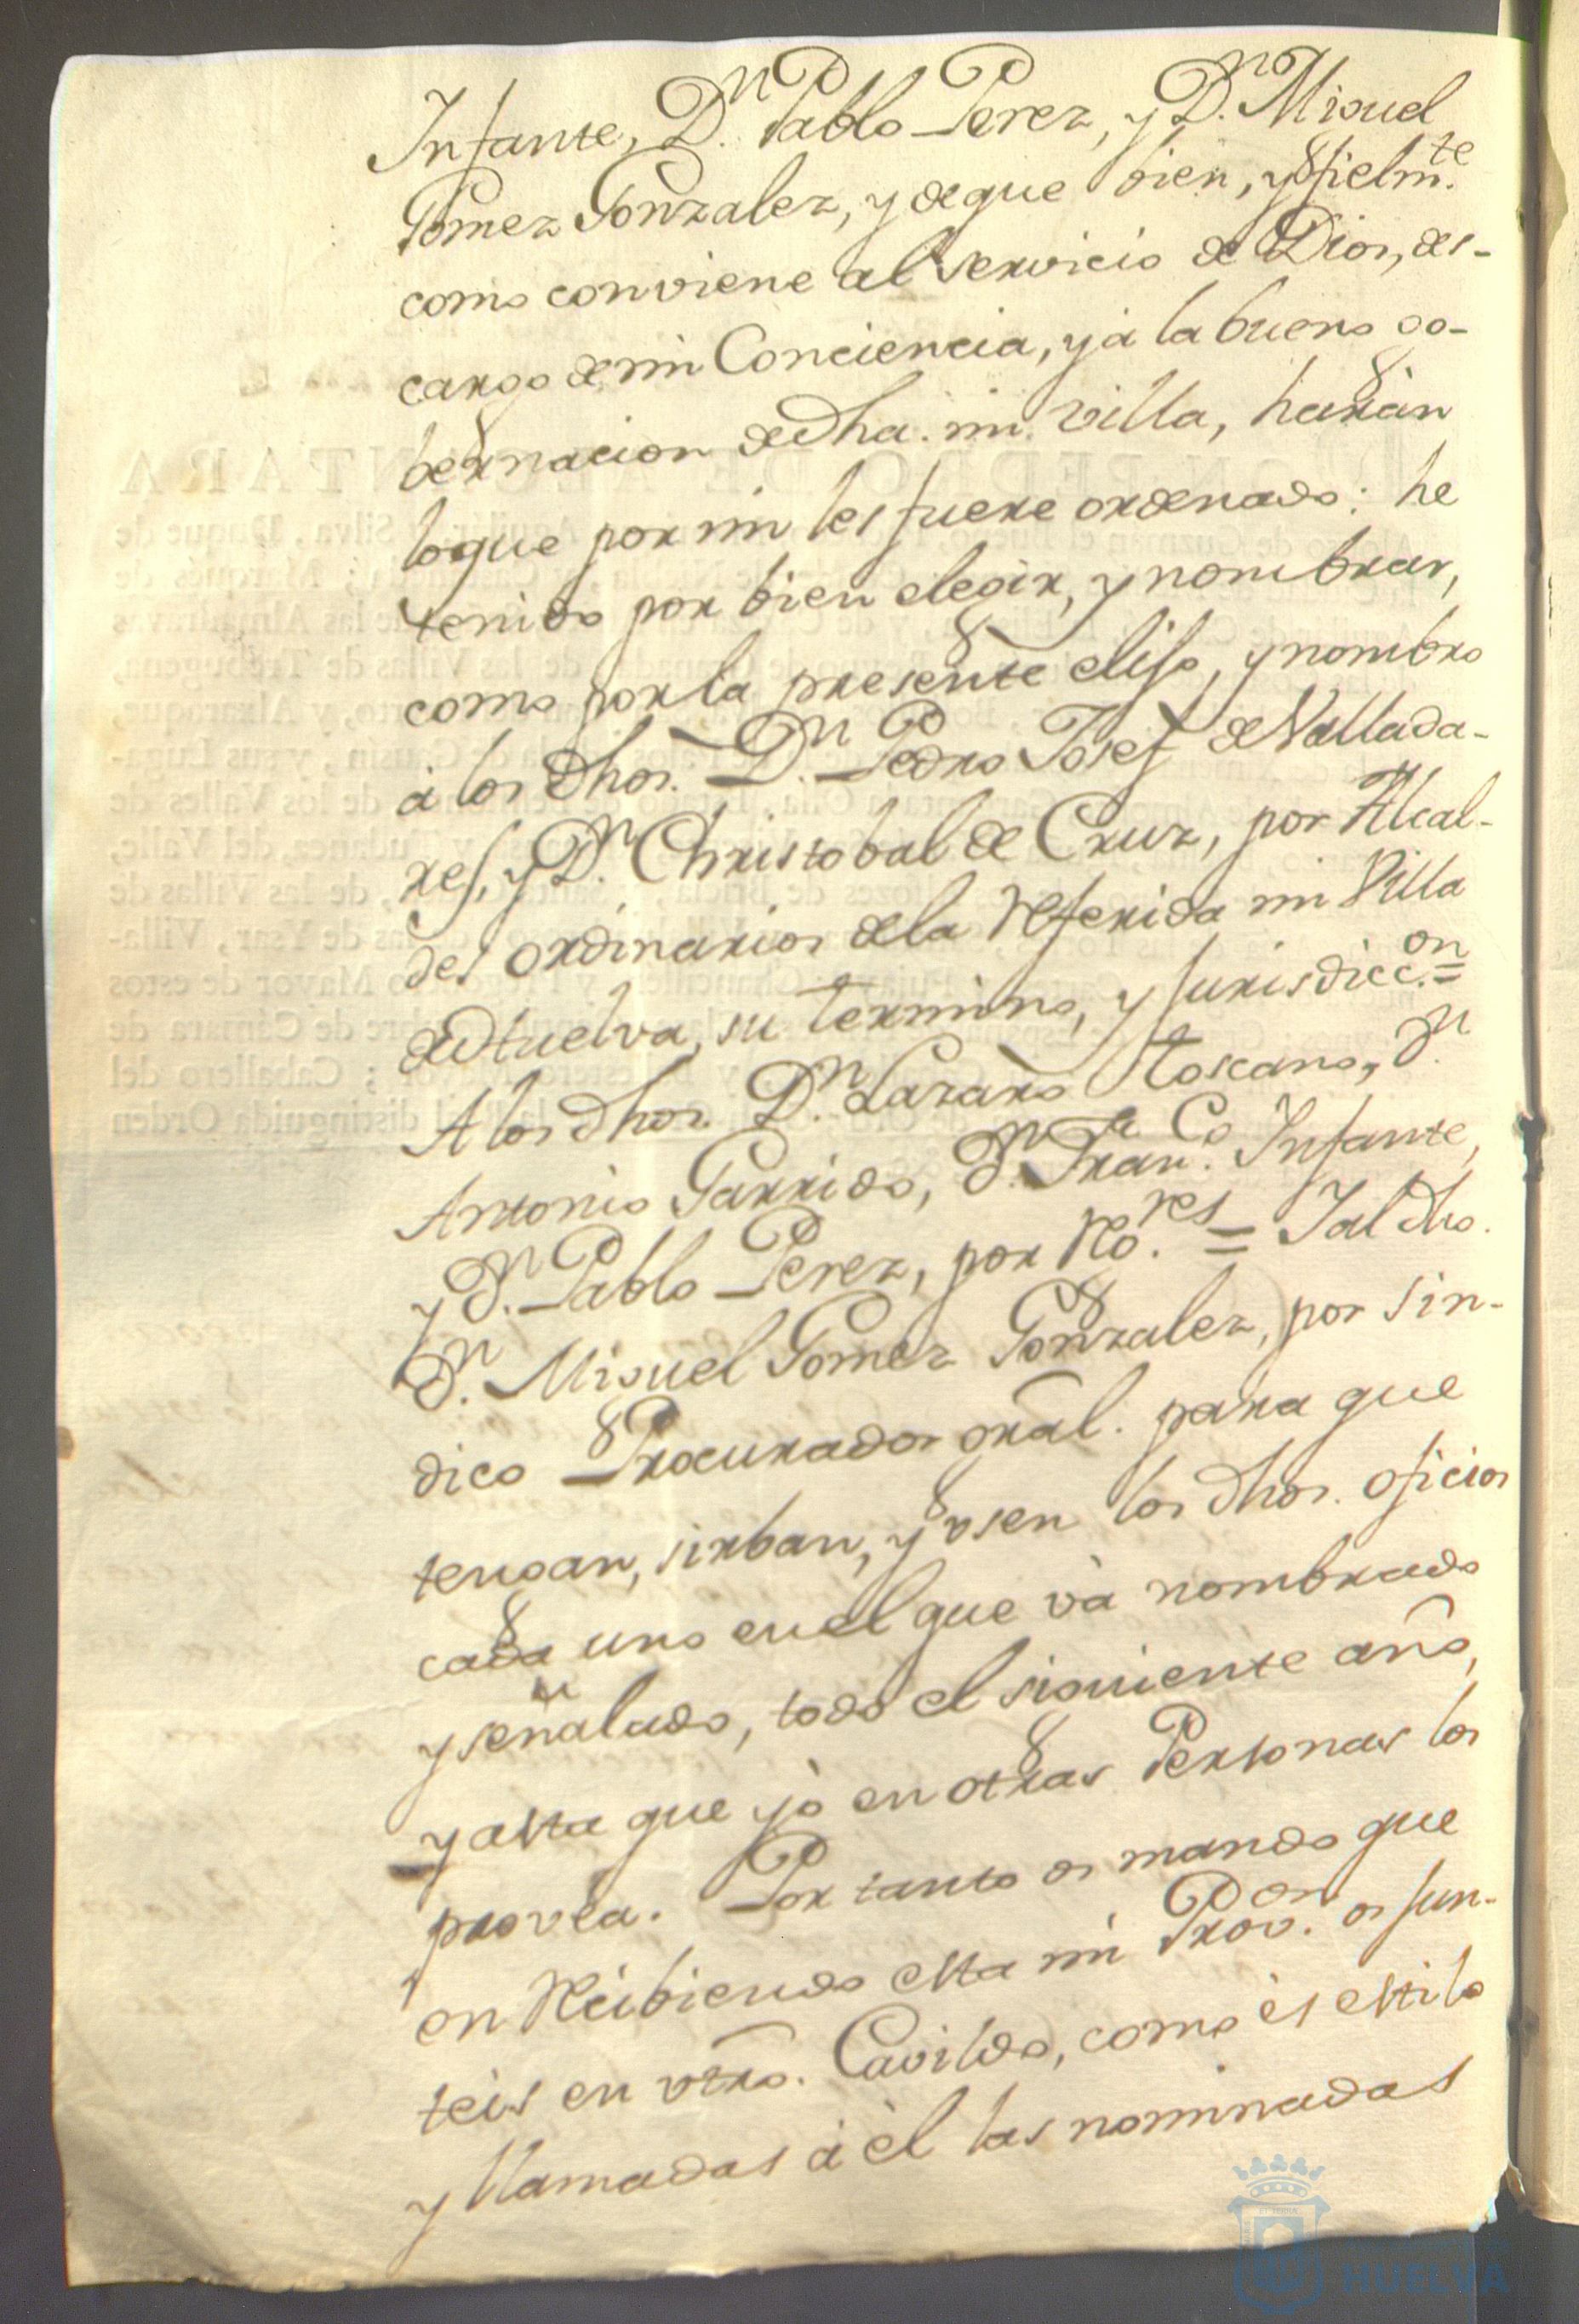 Infante, D.n Pablo Perez, y D.n Miguel
Gomez Gonzalez, y de que bien, y fielm.te
como conviene al servicio de Dios, des-
cargo de mi Conciencia, y à la buena go-
bernacion de dha. mi villa, haràn
lo que por mi les fuere ordenado: he
tenido por bien elegir, y nombrar,
como por la presente elijo, y nombro
à los dhos. D.n Pedro Josef de Vallada-
res, y D.n Christobal de Cruz, por Alcal-
des ordinarios de la referida mi Villa
de Huelva, su termino, y jurisdicc.on=
A los dhos. D.n Lazaro Toscano, D.n
Antonio Garrido, D.n Fran.co Infante,
y D.n Pablo Perez, por Ro.res = Y al dho.
D.n Miguel Gomez Gonzalez, por sin-
dico Procurador gral. para que
tengan, sirban, y usen los dhos. oficios
cada uno en el que và nombrado
y señalado, todo el siguiente año,
y asta que yò en otras Personas los
provea. Por tanto os mando que
en recibiendo esta mi Prov.on os jun-
teis en vtro. Cavildo, como ès estilo
y llamadas à èl las nominadas
HUELVA